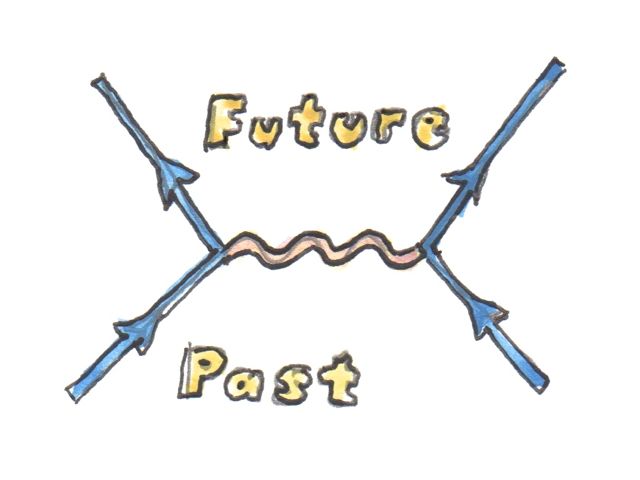 Future
Past